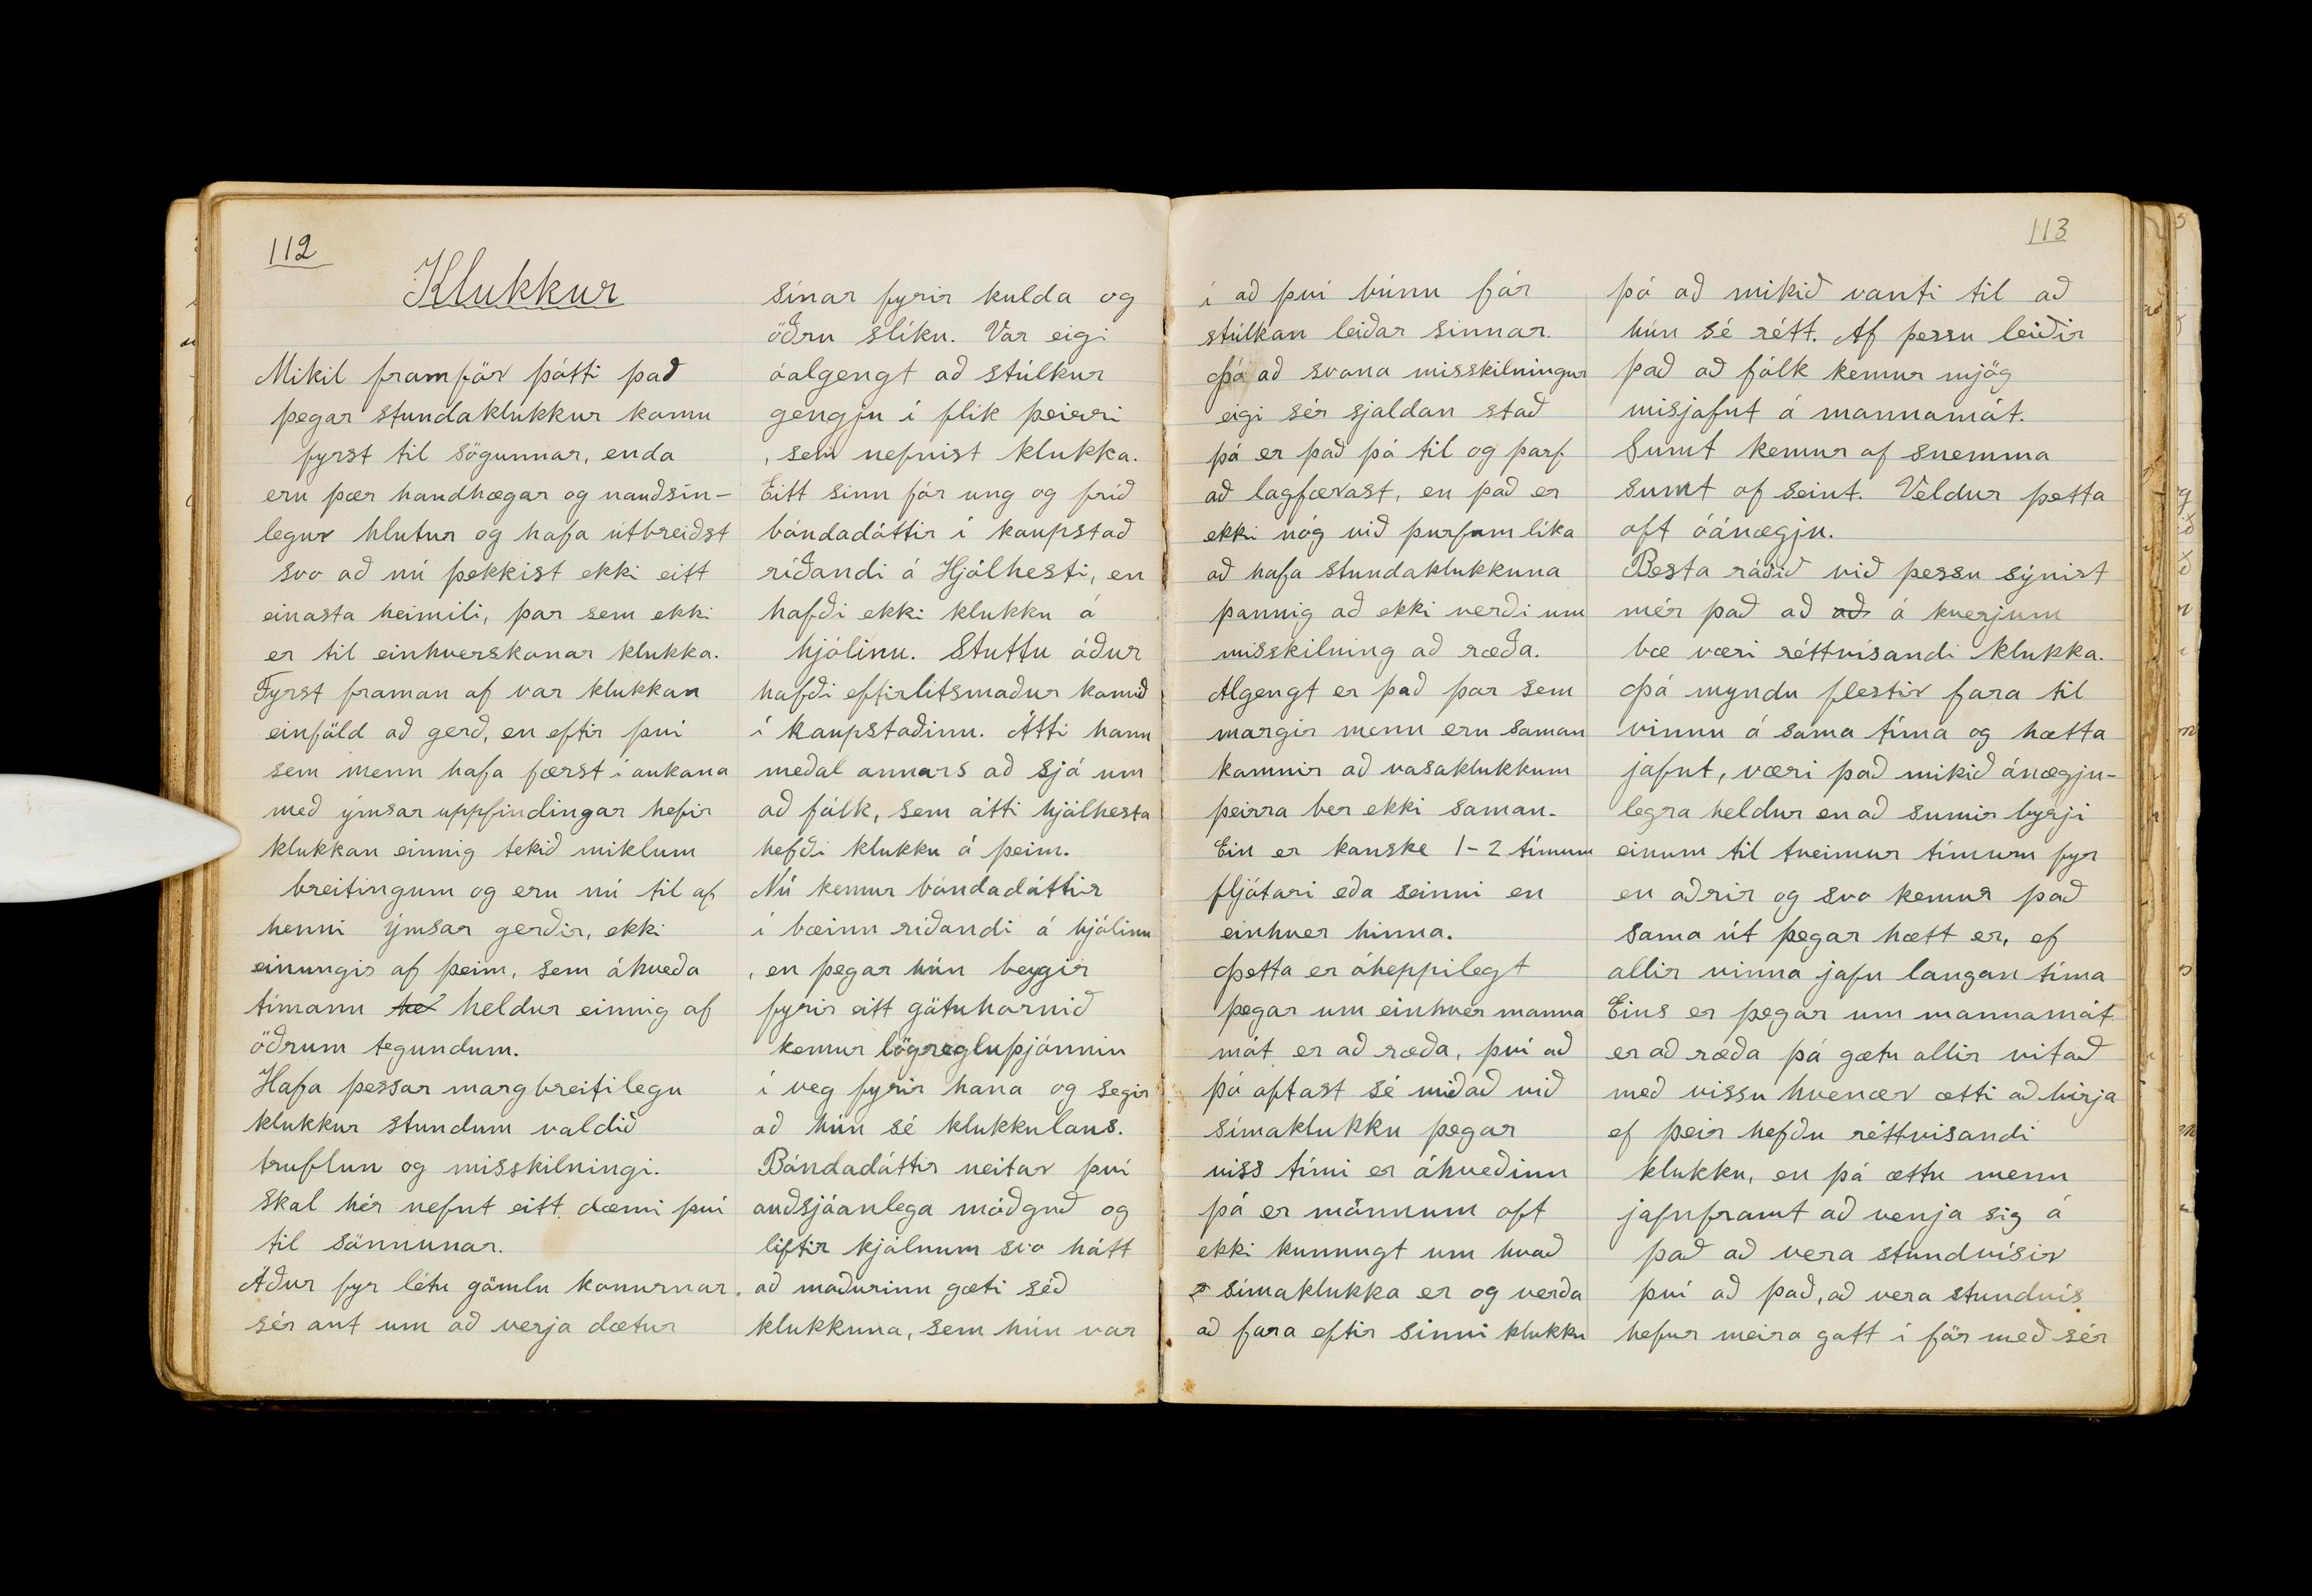 112
Klukkur
Mikil framför þótti það
þegar stundaklukkur komu
fyrst til sögunnar, enda
eru þær handhægar og nauðsin-
legur hlutur og hafa útbreiðst
svo að nú þekkist ekki eitt
einasta heimili, þar sem ekki
er til einhverskonar klukka.
Fyrst framan af var klukkan
einföld að gerð, en eftir því
sem menn hafa færst í aukana
með ýmsar uppfindingar hefir
klukkan einnig tekið miklum
breitingum og eru nú til af
henni ýmsar gerðir, ekki
einungis af þeim, sem ákveða
tímann heldur einnig af
öðrum tegundum.
Hafa þessar margbreitilegu
klukkur stundum valdið
truflun og misskilningi.
Skal hér nefnt eitt dæmi því
til sönnunar.
Áður fyr létu gömlu konurnar
sér ant um að verja dætur
sínar fyrir kulda og
öðru slíku. Var eigi
óalgengt að stúlkur
gengju í flík þeirri
, sem nefnist klukka.
Eitt sinn fór ung og fríð
bóndadóttir í kaupstað
ríðandi á Hjólhesti, en
hafði ekki klukku á
hjólinu. Stuttu áður
hafði eftirlitsmaður komið
í kaupstaðinn. Átti hann
meðal annars að sjá um
að fólk, sem átti hjólhesta
hefði klukku á þeim.
Nú kemur bóndadóttir
í bæinn ríðandi á hjólinu
, en þegar hún beygir
fyrir eitt götuhornið
kemur lögregluþjónnin
í veg fyrir hana og segir
að hún sé klukkulaus.
Bóndadóttir neitar því
auðsjáanlega móðguð og
liftir kjólnum svo hátt
að maðurinn gæti séð
klukkuna, sem hún var
113
í að því búnu fór
stúlkan leiðar sinnar.
Þó að svona misskilningur
eigi sér sjaldan stað
þá er það þó til og þarf
að lagfærast, en það er
ekki nóg við þurfum líka
að hafa stundaklukkuna
þannig að ekki verði um
misskilning að ræða.
Algengt er það þar sem
margir menn eru saman
komnir að vasaklukkum
þeirra ber ekki saman.
Ein er kanske 1-2 tímum
fljótari eða seinni en
einhver hinna.
Þetta er óheppilegt
þegar um einhver manna
mót er að ræða, því að
þó oftast sé miðað við
símaklukku þegar
viss tími er ákveðinn
þá er mönnum oft
ekki kunnugt um hvað
símaklukka er og verða
að fara eftir sinni klukku
þó að mikið vanti til að
hún sé rétt. Af þessu leiðir
það að fólk kemur mjög
misjafnt á mannamót.
Sumt kemur of snemma
sumt of seint. Veldur þetta
oft óánægju.
Besta ráðið við þessu sýnist
mér það að að á hverjum
bæ væri réttvísandi klukka.
Þá myndu flestir fara til
vinnu á sama tíma og hætta
jafnt, væri það mikið ánægju-
legra heldur en að sumir byrji
einum til tveimur tímum fyr
en aðrir og svo kemur það
sama út þegar hætt er, ef
allir vinna jafn langan tíma
Eins er þegar um mannamót
er að ræða þá gætu allir vitað
með vissu hvenær ætti að birja
ef þeir hefðu réttvísandi
klukku, en þá ættu menn
jafnframt að venja sig á
það að vera stundvísir
því að það, að vera stundvís
hefur meira gott í för með sér